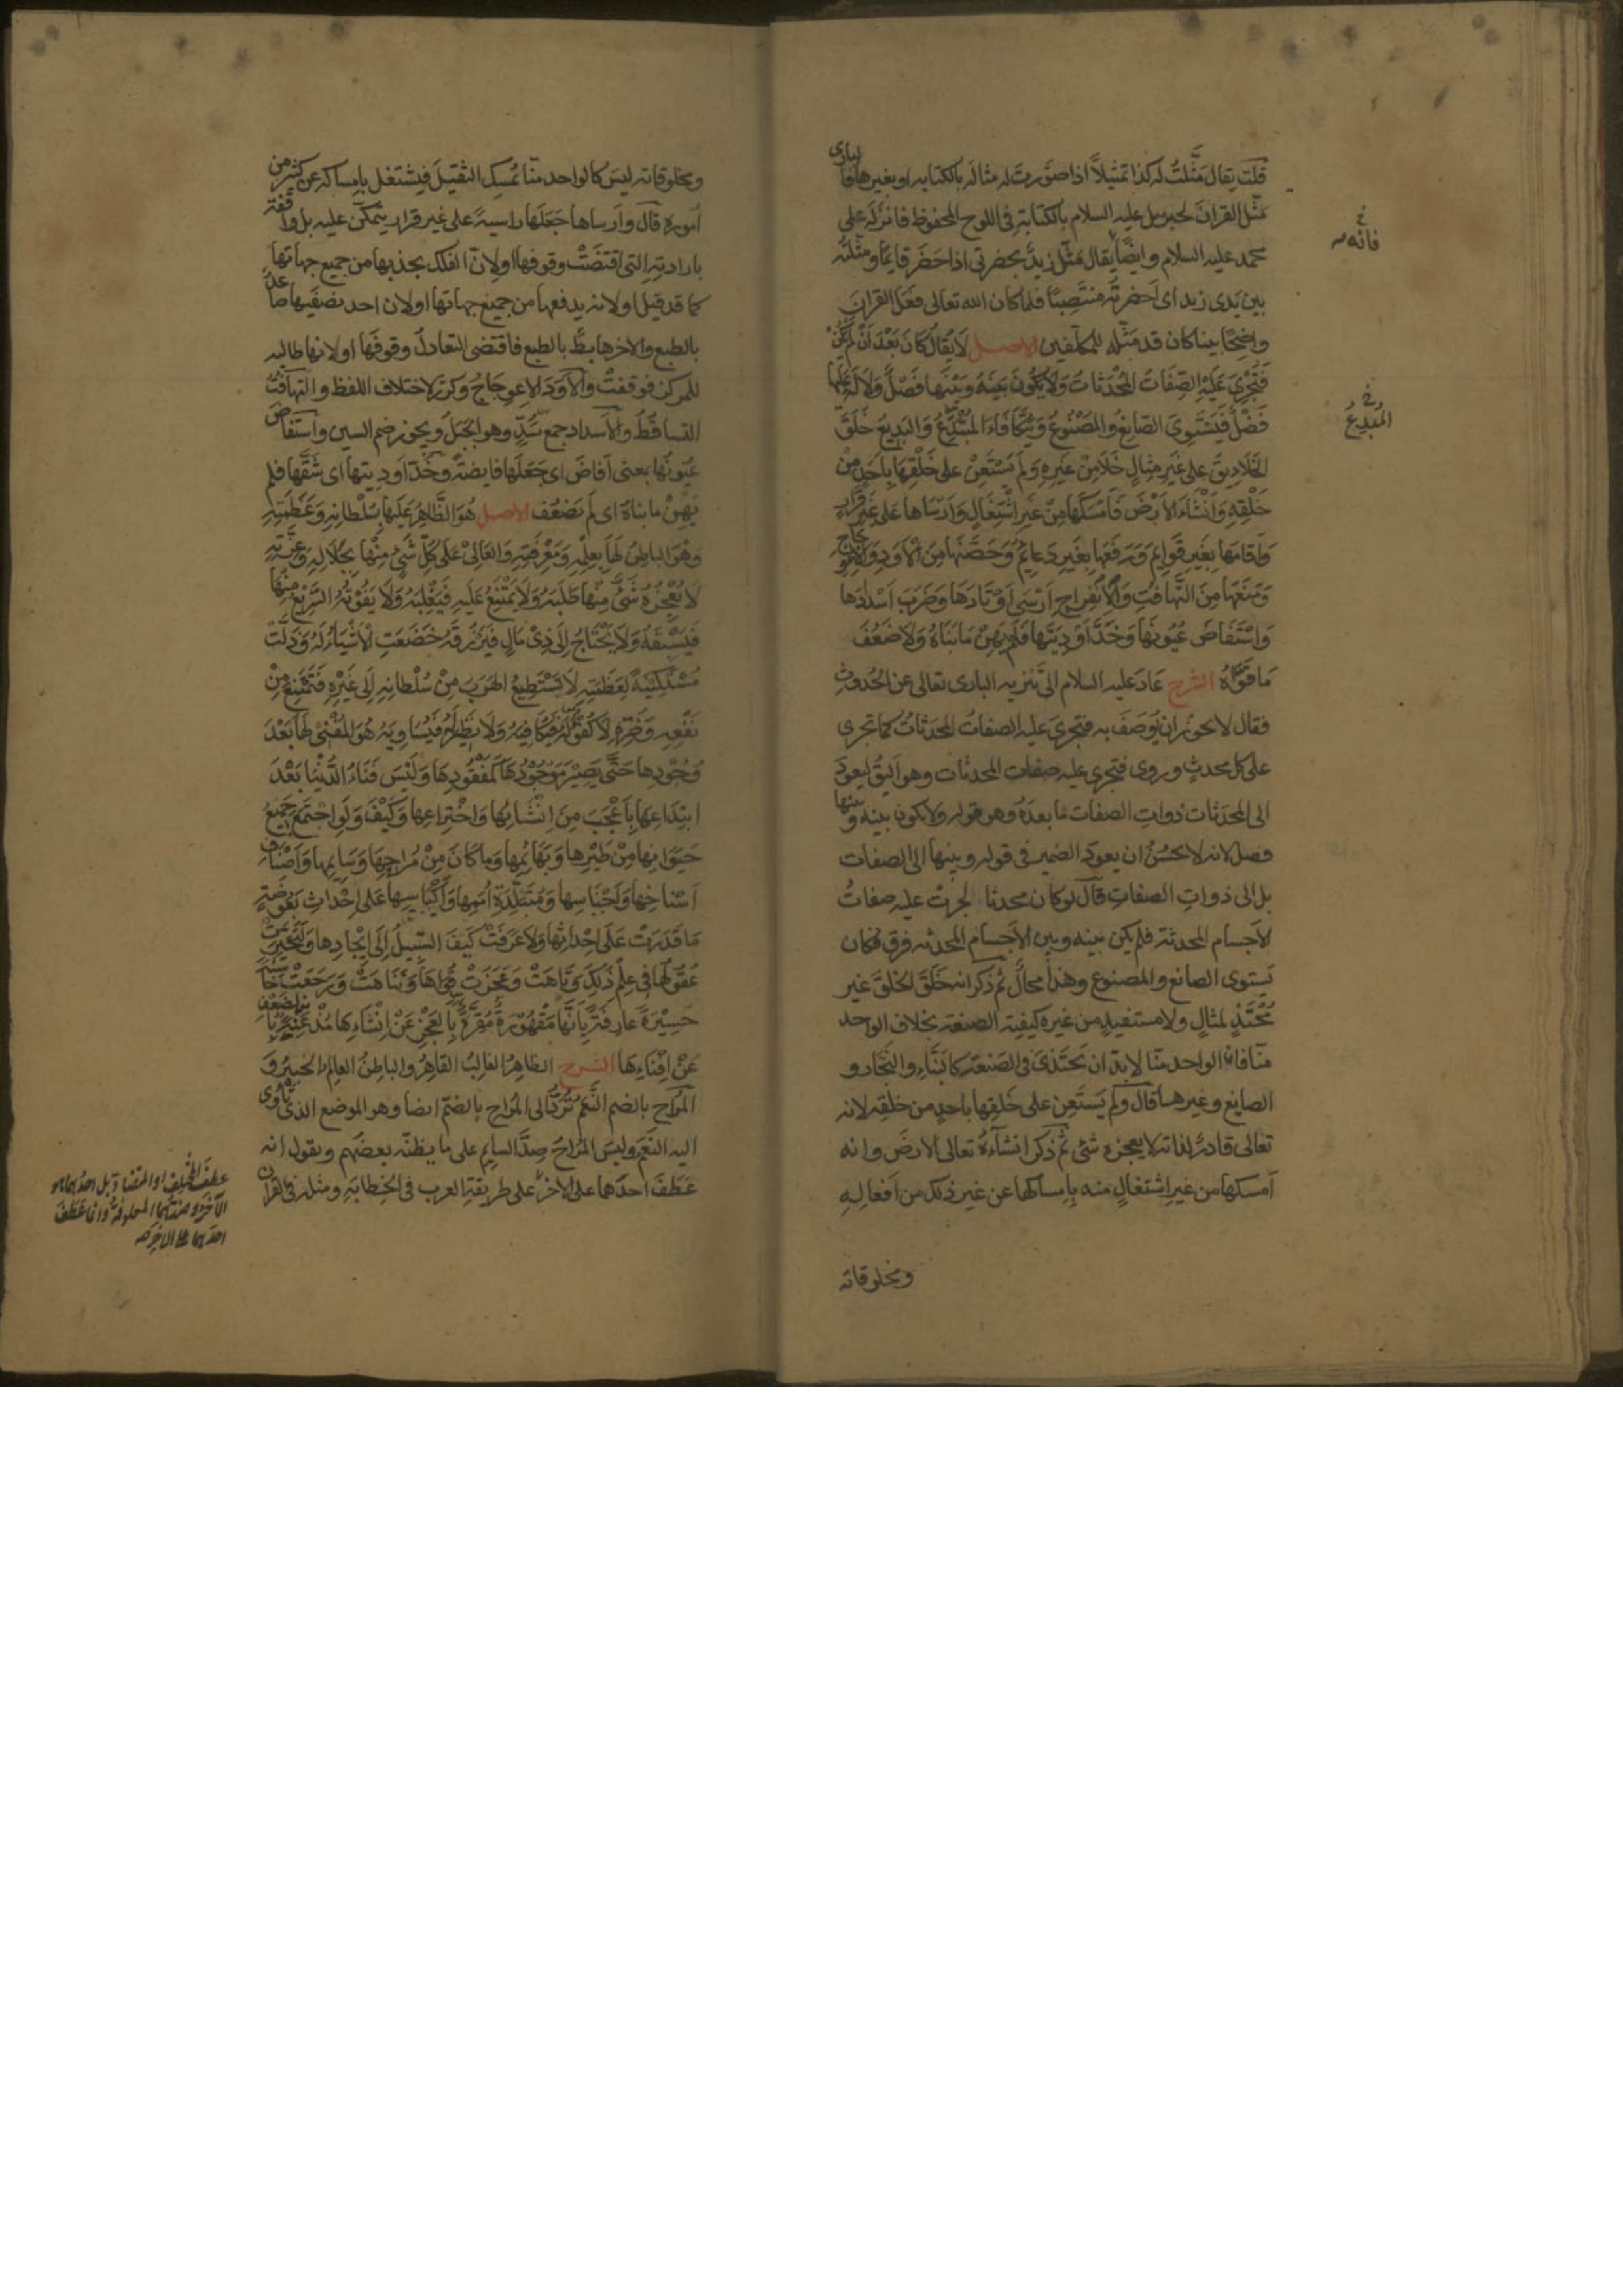 قلت يقال مَثَّلتُ له كذا تمثيلاً اذا صوّرتَ له مثاله بالكتابه او بغيرها فالبارى
مثّل القران لجبريل عليه السلام بالكتابة فى اللوح المحفوظ فانزله على
محمد عليه السلام وايضًا يقال مَثَلَ زيدٌ بحضرتى اذا حَضَر قايمًا ومثّلتُه
بين يَدى زيد اى اَحضرتُه منتَصِبًا فلما كان الله تعالى فعَلَ القرانَ
واضِحًا بينا كان قد مَثّله للمكلّفين الاصل لَا يُقَالُ كَانَ بَعْدَ اَنْ لَم يَكُنْ
فَتَجْرِىَ عَلَيْهِ الصِّفَاتُ المُحْدَثَاتُ وَلَا يَكُونَ بَيْنَهُ وَبَيْنَهَا فَصْلٌ وَلَا لَه عَلَيْهَا
فَضْلٌ فَيَسْتَوِىَ الصَّانِعُ وَالمَصْنُوعُ وَيَتَكَافَاَ المُبْتَدِعُ وَالبَدِيعُ خَلَقَ
الخَلَايِقَ عَلى غَيرِ مِثَالٍ خَلَا مِنْ غَيرِهِ وَلَم يَسْتَعِنْ عَلى خَلْقِهَا بِاَحَدٍ مِنْ
خَلْقِهِ وَاَنْشَاَ الاَرْضَ فَاَمْسَكَهَا مِنْ غَيرِ اشْتِغَالٍ وَاَرْسَاهَا عَلى غَيرِ قَرَارٍ
وَاَقَامَهَا بِغَيرِ قَوَايمَ وَرَفَعَهَا بِغَيرِ دَعَايمَ وَحَصَّنَهَا مِنَ الاَوَدِ وَالاِعْوِجَاجِ
وَمَنَعَهَا مِنَ التَّهَافُتِ وَالاِنْفِرَاجِ اَرْسَى اَوْتَادَهَا وَضَرَبَ اَسْدَادَهَا
وَاسْتَفَاضَ عُيُونَهَا وَخَدَّ اَوْدِيَتَهَا فَلَم يَهِنْ مَا بَنَاهُ وَلَا ضَعُفَ
مَا قَوَّاهُ الشرح عَادَ عليه السلام الى تنزيه البارى تعالى عن الحُدوثِ
فقال لا يجوز ان يُوصَفَ به فتجرىَ عليه الصفاتُ المحدَثاتُ كما تجرى
على كل محدثٍ وروى فتجرى عليه صفات المحدثات وهو اَليقُ ليعودَ
الى المحدَثات ذوات الصفات ما بعدَهُ وهو قوله ولا يكون بينه وبينها
فصل لانه لا يحسُنُ ان يعودَ الضمير فى قوله وبينها الى الصفات
بل الى ذوات الصفات قال لو كان محدثا لجرتْ عليه صفاتُ
الاجسام المحدثة فلم يكن بينه وبين الاجسام المحدثه فرق فكان
يَستوى الصانع والمصنوع وهذا محالٌ ثم ذكر انه خَلَقَ الخلقَ غير
مُحْتَذٍ لمثالٍ ولا مستفيدٍ من غيره كيفيّة الصنعة بخلاف الواحد
منّا فان الواحد منّا لا بدّ ان يَحْتَذىَ فى الصَنعة كالبَنَّاءِ والنَّجّار و
الصايغ وغيرها قال ولَم يَستَعِن على خَلقِها باحدٍ من خلقِه لانه
تعالى قادرٌ لذاته لا يعجزه شئ ثم ذكر انشاءَهُ تعالى الارضَ وانه
اَمسكها من غير اشتغالٍ منه بِامساكها عن غير ذلك من اَفعالِهِ
ومخلوقاته
خ
فانه
وفى خ
المبدِع
ومخلوقاته ليسَ كالواحد منّا يُمسِك الثقيلَ فيشتغل بامساكه عن كثير من
اموره قال واَرساها جَعَلَها راسيةً على غير قرارٍ يتمكّن عليه بل واقفة
بارادته التى اقتضَتْ وقوفها او لانّ الفلك يجذبها من جميع جهاتها
كما قد قيل او لانه يدفعها من جميع جهاتها او لان احد نصفَيها صاعدٌ
بالطبع والاخر هابطٌ بالطبع فاقتضى التعادلُ وقوفَها او لانها طالبه
للمركز فوقفتْ والاَوَدُ الاعوجَاجُ وكرّر لاختلاف اللفظ والتهافُتُ
التساقُط والاَسداد جمع سَدّ وهو الجَبَل ويجوز ضم السين واستفاض
عُيونَها بمعنى اَفاضَ اى جَعَلَها فايضةً وخدّ اَوديتها اى شَقّها فلم
يَهِنْ ما بناهُ اى لَم يَضعُف الاصل هُوَ الظَّاهِرُ عَلَيهَا بِسُلْطَانِهِ وَعَظَمَتِهِ
وَهُوَ البَاطِنُ لَهَا بِعِلْمِهِ وَمَعْرِفَتِهِ وَالعَالِى عَلى كُلِّ شَىْءٍ مِنْهَا بِجَلَالِهِ وَعِزَّتِهِ
لَا يُعْجِزُهُ شَىْءٌ مِنْهَا طَلَبَهُ وَلَا يَمْتَنِعُ عَلَيهِ فَيَغْلِبَهُ وَلَا يَفُوتُهُ السَّرِيْعُ مِنْهَا
فَيَسْبِقَهُ وَلَا يَحْتَاجُ اِلَى ذِىْ مَالٍ فَيَرْزُقَهُ خَضَعَتِ الاَشْيَاءُ لَهُ وَذَلَّتْ
مُسْتَكِيْنَةً لِعَظَمَتِهِ لَا تَسْتَطِيعُ الهَرَبَ مِنْ سُلْطَانِهِ اِلَى غَيْرِهِ فَتَمْتَنِعَ مِنْ
نَفْعِهِ وَضَرِّهِ وَلَا كُفْؤَ لَهُ فَيُكَافِيَهُ وَلَا نَظِيْرَ لَهُ فَيُسَاوِيَهُ هُوَ المُفْنِى لَهَا بَعْدَ
وُجُودِهَا حَتَّى يَصِيْرَ مَوْجُوْدُهَا كَمَفْقُودِهَا وَلَيْسَ فَنَاءُ الدُّنْيَا بَعْدَ
ابْتِدَاعِهَا بِاَعْجَبَ مِنَ اِنْشَائِهَا وَاخْتِرَاعِهَا وَكَيْفَ وَلَوِ اجْتَمَعَ جَمِيْعُ
حَيَوَانِهَا مِنْ طَيْرِهَا وَبَهَايِمِهَا وَمَا كَانَ مِنْ مُرَاحِهَا وَسَايِمِهَا وَاَصْنَافِ
اَسْنَاخِهَا وَاَجْنَاسِهَا وَمُتَبَلِّدَةِ اُمَمِهَا وَاَكْيَاسِهَا عَلى اِحْدَاثِ بَعُوضَةٍ
مَا قَدَرَتْ عَلَى اِحْدَاثِهَا وَلَا عَرَفَتْ كَيْفَ السَّبِيلُ اِلَى اِيْجَادِهَا وَلَتَحَيَّرَتْ
عُقُولُهَا فى عِلْمِ ذَلِكَ وَتَاهَتْ وَعَجَزَتْ قُوَاهَا وَتَنَاهَتْ وَرَجَعَتْ خَاسِئَةً
حَسِيْرَةً عَارِفَةً بِاَنَّهَا مَقْهُوْرَةٌ مُقِرَّةً بِالعَجْزِ عَنْ اِنْشَائِهَا مُذْعِنَةً بِالضَعْفِ
عَنْ اِفْنَائِهَا الشرح الظاهِرُ الغالِبُ القاهِرُ والباطِنُ العالِم الخبيرُ و
المُرَاح بالضم النَّعَم تُرَدّ الى المُراح بالضمّ ايضا وهو الموضع الذى تأوى
اليه النَّعَم وليسَ المُراحُ ضِدَّ السايم على ما يظنّه بعضهم ويقول انه
عَطَفَ احدَهما على الآخر على طريقةِ العرب فى الخِطابَةِ ومثله فى القران
عطفَ المختلف او المتضادّ بل احدُهما هو
الآخَر وضدّهما المعلوفة وانما عَطَفَ
احدهما على الاخر